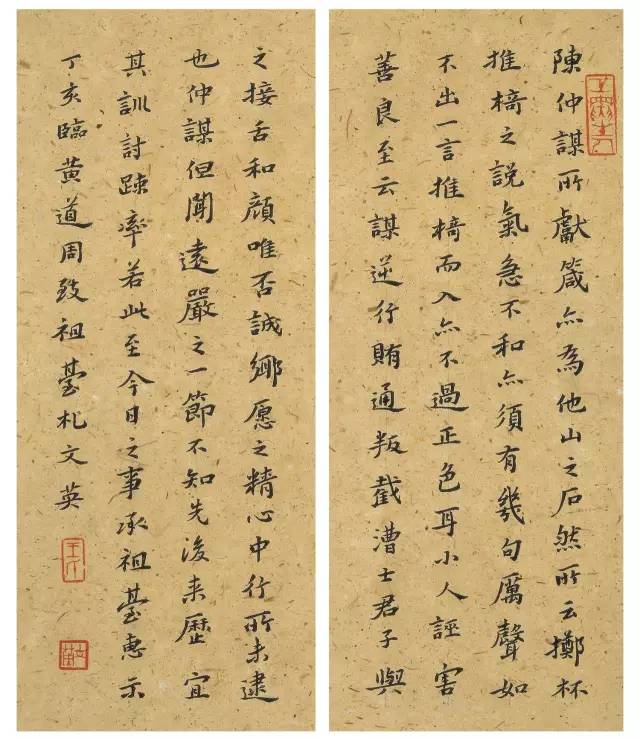 陳仲謀所獻箴亦為他山之石然所云擲杯
推椅之說氣急不和亦須有幾句厲聲如
不出一言推椅而入亦不過正色耳小人誣害
善良至云謀逆行賄通叛截漕士君子與
之接舌和顏唯否誠鄉愿之精心中行所未逮
也仲謀但聞遠嚴之一節不知先後来歷宜
其訓討踈率若此至今日之事承祖臺惠示
丁亥臨黃道周致祖臺札文英